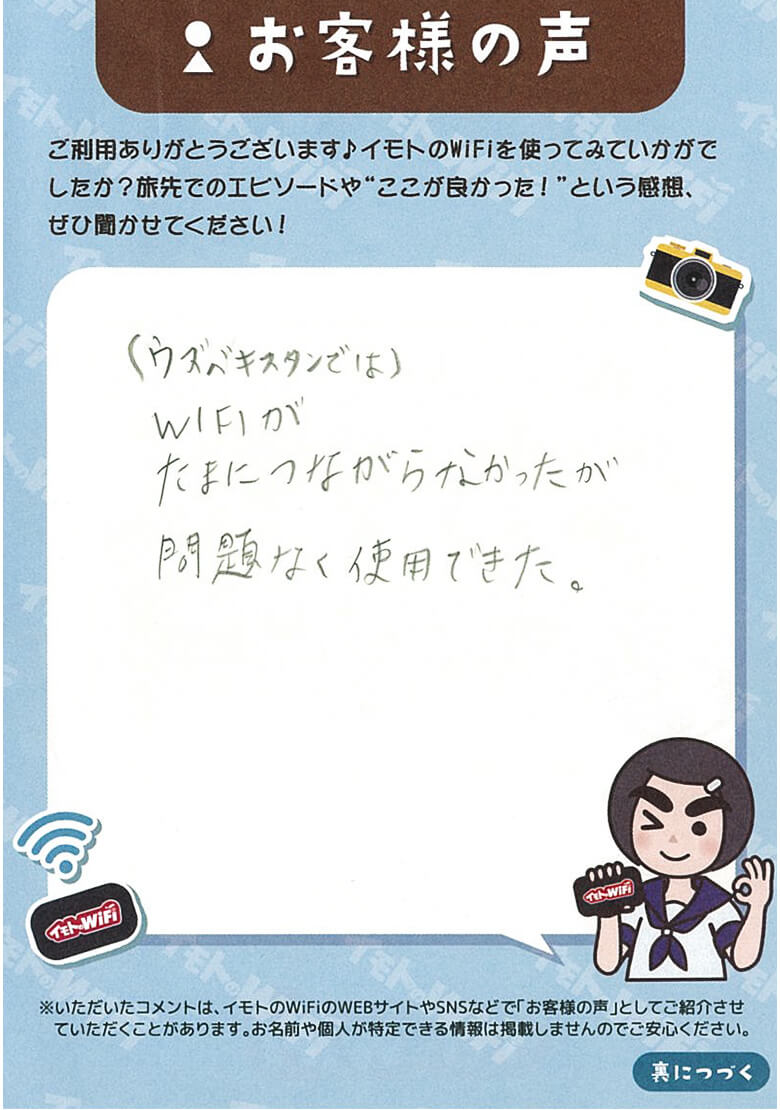 お客様の声
ご利用ありがとうございます♪イモトのWiFiを使ってみていかがで
したか?旅先でのエピソードや“ここが良かった!”という感想、
ぜひ聞かせてください!
(ウズベキスタンでは)
WIFIが
たまにつながらなかったが
問題なく使用できた。
イモトのWiFi
イモトのWiFi
※いただいたコメントは、イモトのWiFiのWEBサイトやSNSなどで「お客様の声」としてご紹介させ
ていただくことがあります。お名前や個人が特定できる情報は掲載しませんのでご安心ください。
裏につづく